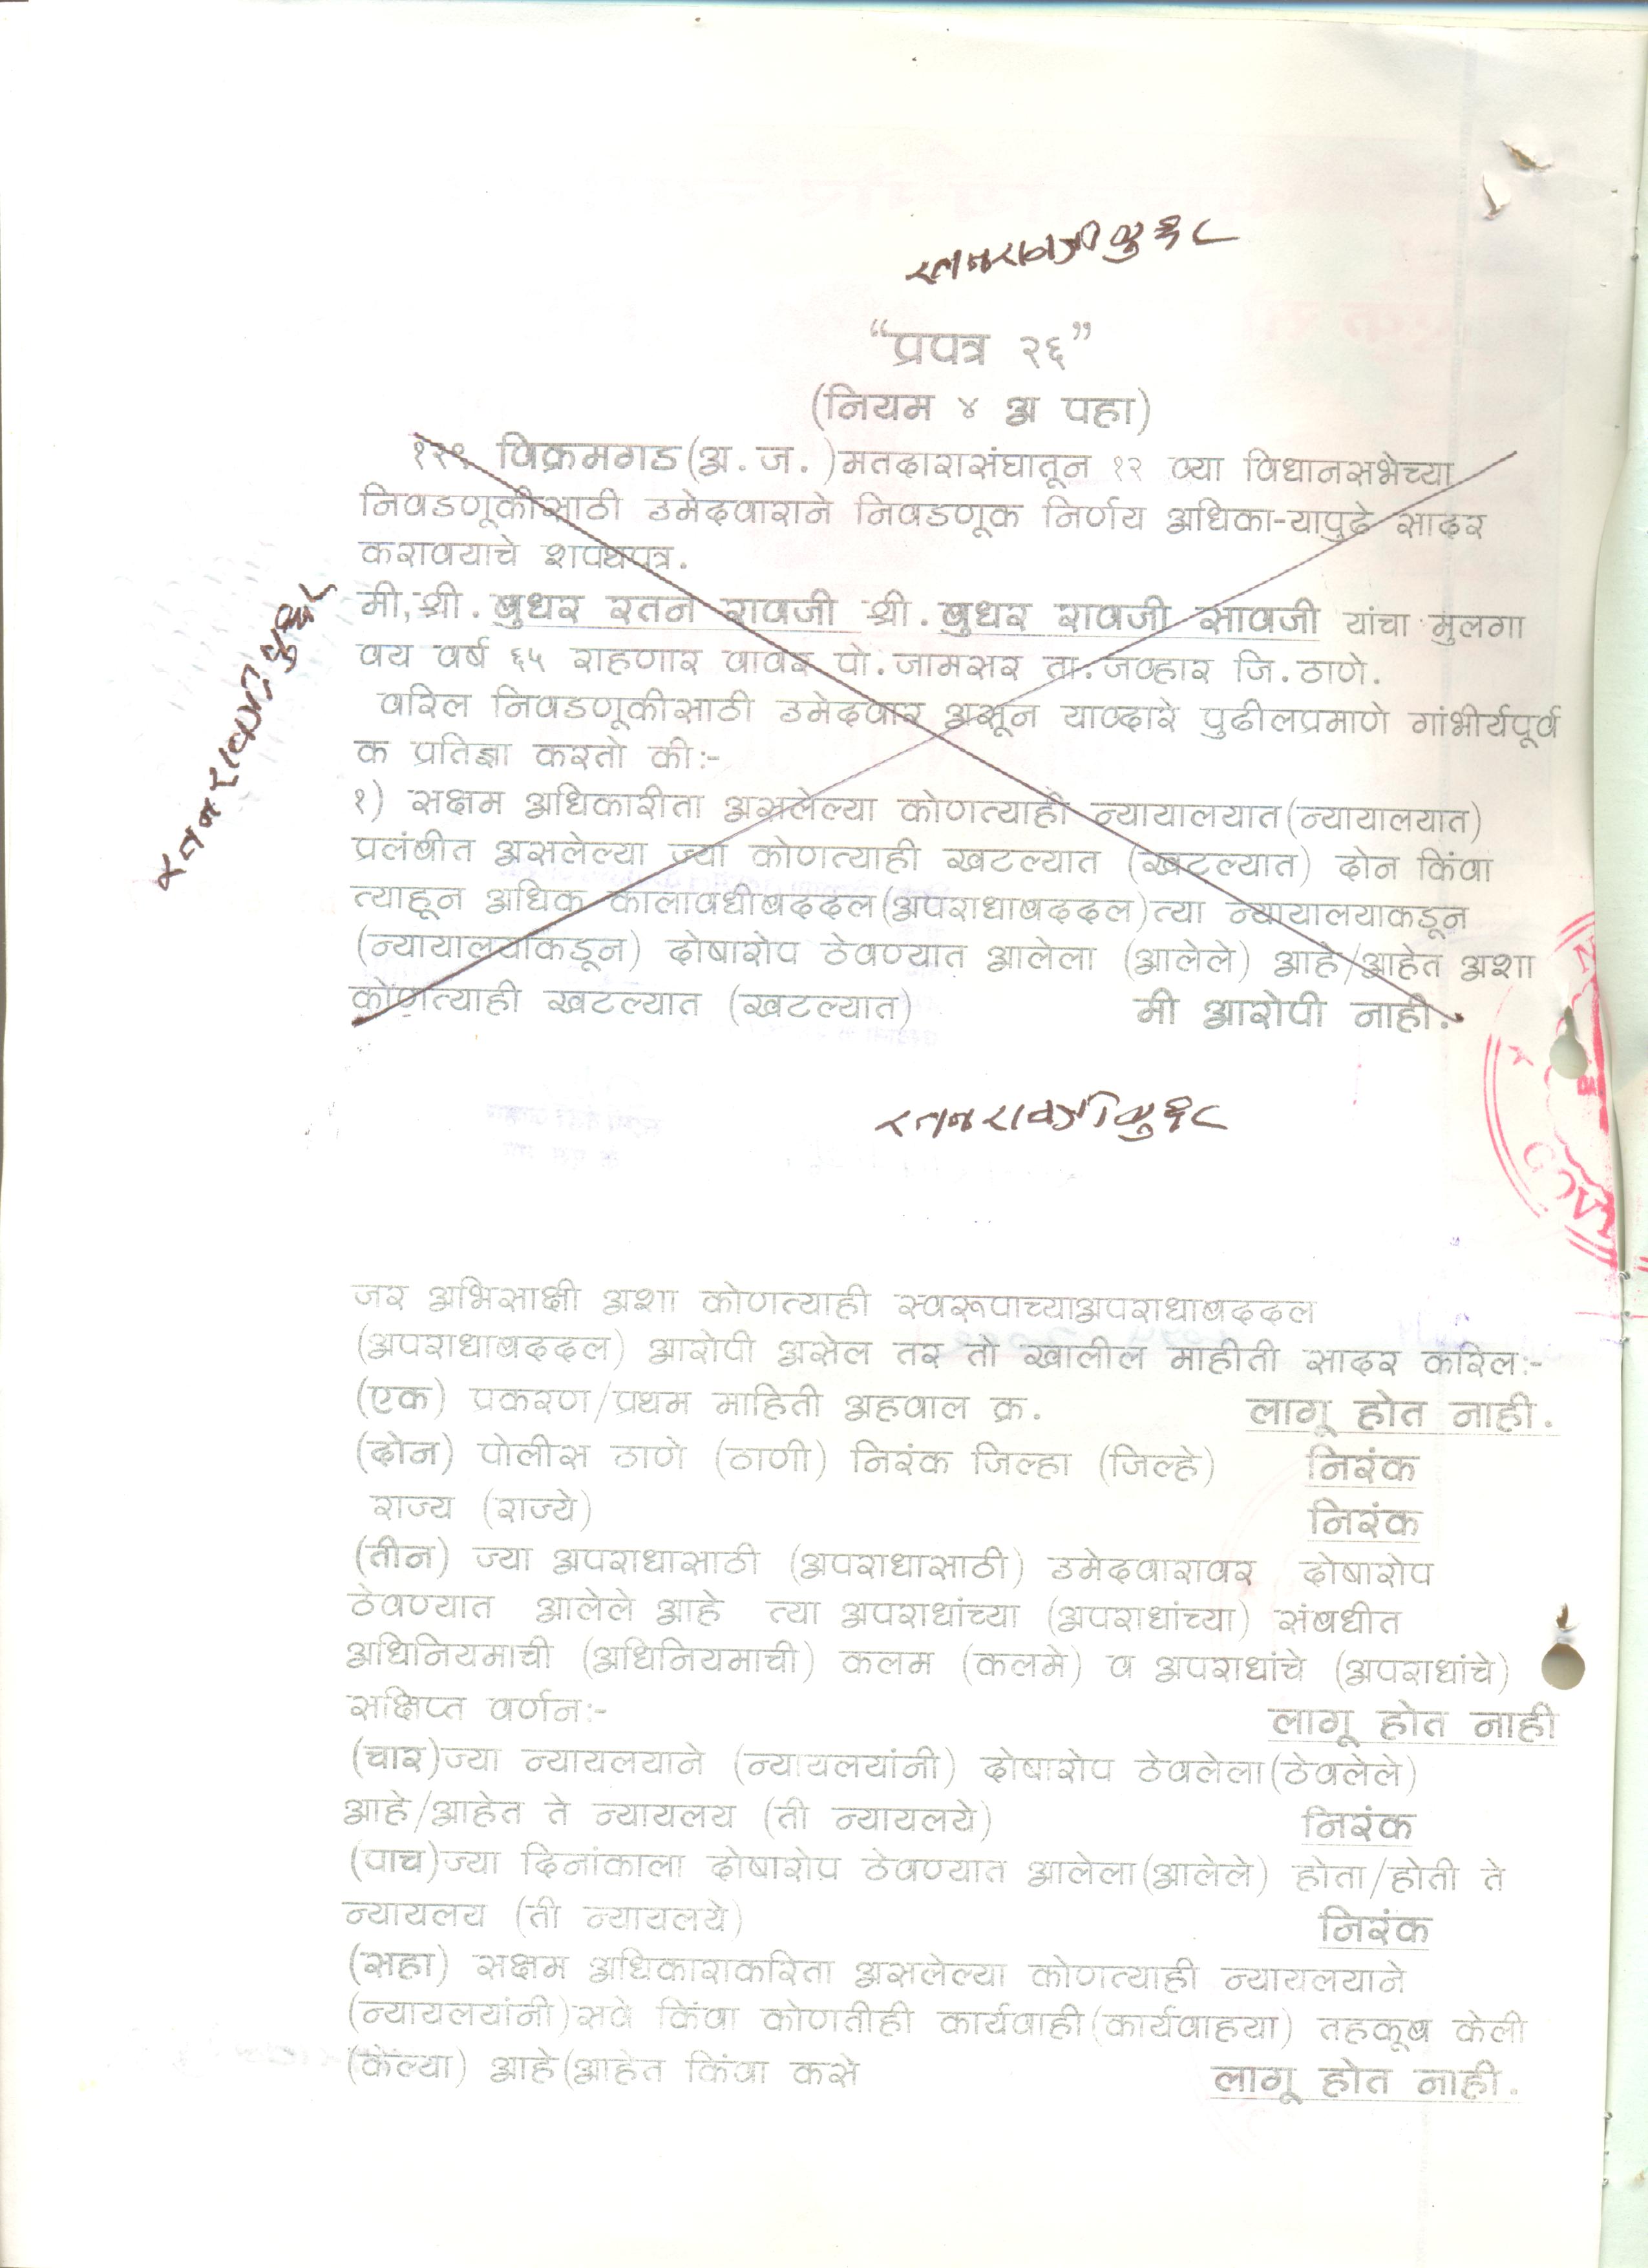 रतन रावजी बुधर
“प्रपत्र २६”
(नियम ४ अ पहा)
१२९ विक्रमगड(अ.ज.)मतदारासंघातून १२ व्या विधानसभेच्या
निवडणूकीसाठी उमेदवाराने निवडणूक निर्णय अधिका-यापुढे सादर
करावयाचे शपथपत्र.
मी,श्री. बुधर रतन रावजी श्री. बुधर रावजी सावजी यांचा मुलगा
वय वर्ष ६५ राहणार वावर पो.जामसर ता.जव्हार जि.ठाणे.
वरिल निवडणूकीसाठी उमेदवार असून याव्दारे पुढीलप्रमाणे गांभीर्यपूर्व
क प्रतिज्ञा करतो की:-
१) सक्षम अधिकारीता असलेल्या कोणत्याही न्यायालयात(न्यायालयात)
प्रलंबीत असलेल्या ज्या कोणत्याही खटल्यात (खटल्यात) दोन किंवा
त्याहून अधिक कालावधीबददल(अपराधाबददल)त्या न्यायालयाकडून
(न्यायालयाकडून) दोषारोप ठेवण्यात आलेला (आलेले) आहे/आहेत अशा
कोणत्याही खटल्यात (खटल्यात) मी आरोपी नाही.
रतन रावजी बुधर
रतन रावजी बुधर
जर अभिसाक्षी अशा कोणत्याही स्वरूपाच्याअपराधाबददल
(अपराधाबददल) आरोपी असेल तर तो खालील माहीती सादर करिल:-
(एक) प्रकरण/प्रथम माहिती अहवाल क्र. लागू होत नाही.
(दोन) पोलीस ठाणे (ठाणी) निरंक जिल्हा (जिल्हे) निरंक
राज्य (राज्ये) निरंक
(तीन) ज्या अपराधासाठी (अपराधासाठी) उमेदवारावर दोषारोप
ठेवण्यात आलेले आहे त्या अपराधांच्या (अपराधांच्या) संबधीत
अधिनियमाची (अधिनियमाची) कलम (कलमे) व अपराधांचे (अपराधांचे)
सक्षिप्त वर्णन:- लागू होत नाही
(चार)ज्या न्यायलयाने (न्यायलयांनी) दोषारोप ठेवलेला(ठेवलेले)
आहे/आहेत ते न्यायलय (ती न्यायलये) निरंक
(पाच)ज्या दिनांकाला दोषारोप ठेवण्यात आलेला(आलेले) होता/होती ते
न्यायलय (ती न्यायलये) निरंक
(सहा) सक्षम अधिकाराकरिता असलेल्या कोणत्याही न्यायलयाने
(न्यायलयांनी)सवे किंवा कोणतीही कार्यवाही(कार्यवाहया) तहकूब केली
(केल्या) आहे(आहेत किंवा कसे लागू होत नाही.